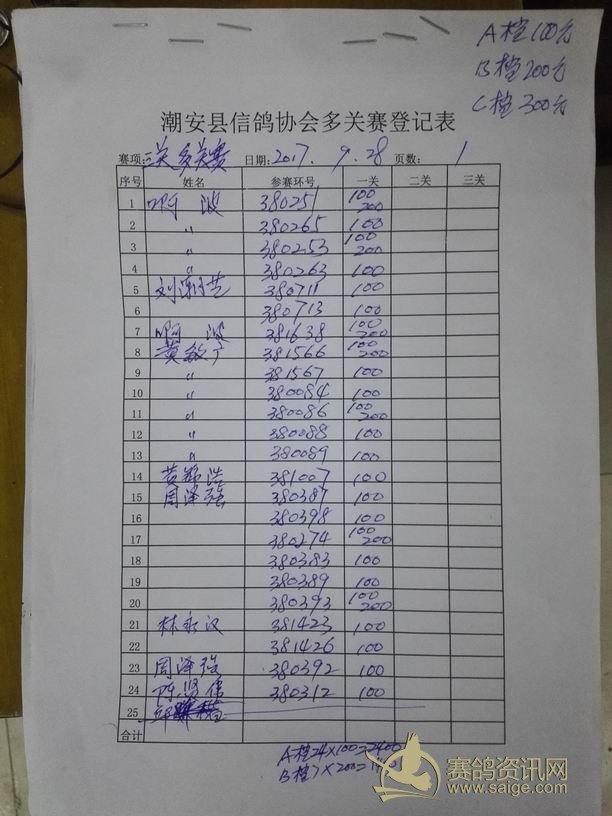 A档100元
B档200元
C档300元
潮安县信鸽协会多关赛登记表
赛项:三关多关赛 日期:2017.9.28 页数:1
序号 姓名 参赛环号 一关 二关 三关
1 啊波 380251 100 200
2 〃 380265 100
3 〃 380253 100 200
4 〃 380263 100
5 刘 380711 100
6 380713 100
7 啊波 381638 100 200
8 黄 381566 100 200
9 〃 381567 100
10 〃 380084 100
11 〃 380086 100 200
12 〃 380088 100
13 〃 380089 100
14 黄 浩 381007 100
15 周泽强 380387 100
16 380398 100
17 380274 100 200
18 380383 100
19 380389 100
20 380393 100 200
21 林永汉 381423 100
22 381426 100
23 周泽强 380392 100
24 陈贤伟 380312 100
25
合计
A档24×100=2400
B档7×200=1400
赛鸽资讯网
www.saige.com